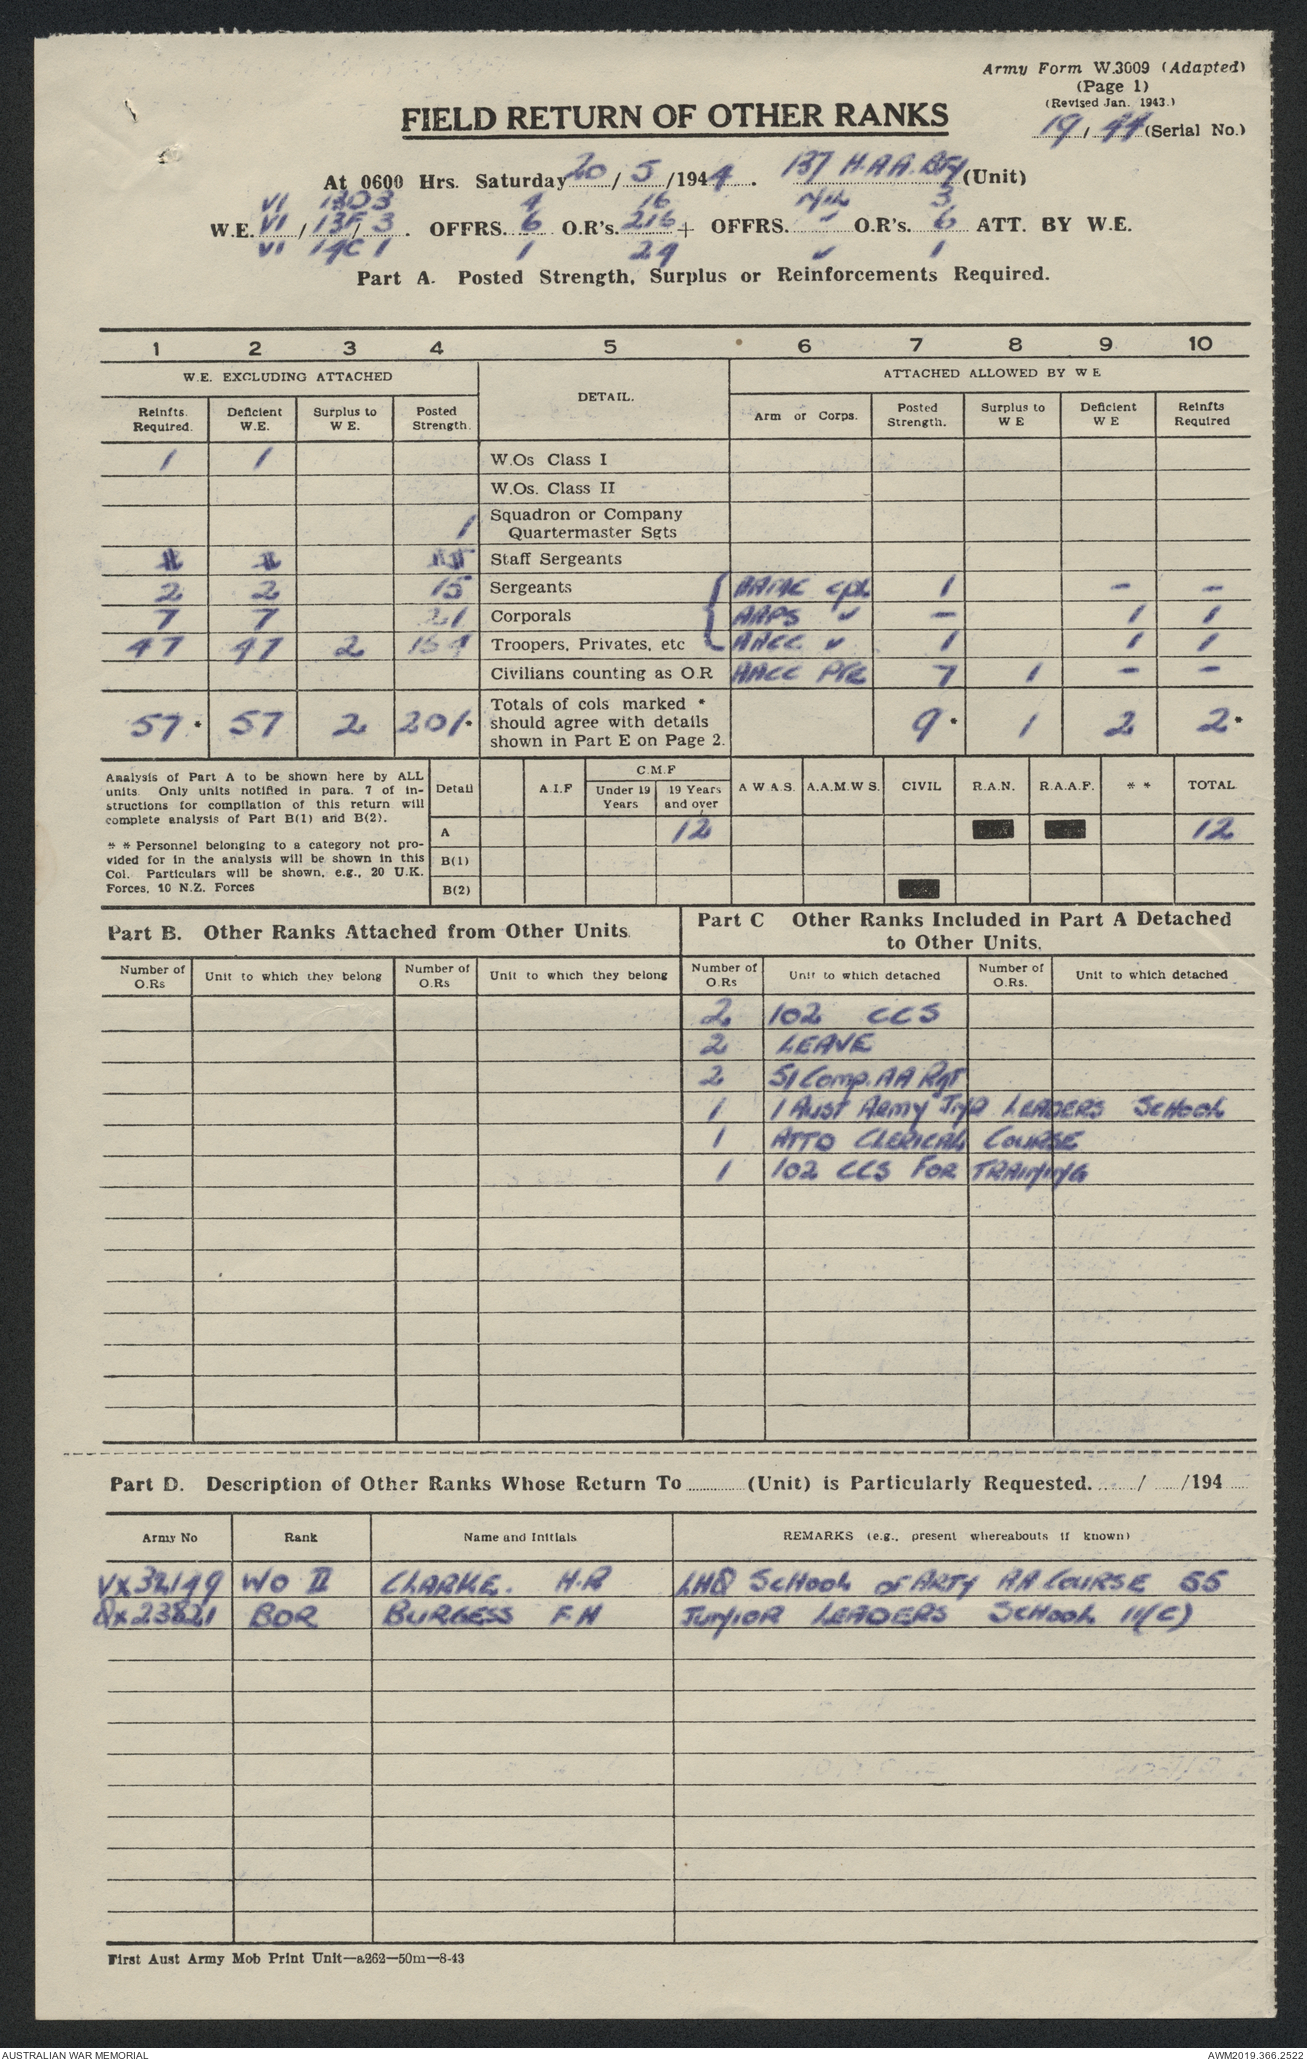 Army Form W.3009 (Adapted)
(Page 1)
(Revised Jan. 1943.)
FIELD RETURN OF OTHER RANKS
19/44 (Serial No.)
At 0600 Hrs. Saturday 20/5/1944. 137 H.A.A. Bty (Unit)
VI 13D3 4 16 Nil 3
W.E. VI / 13F / 3. OFFRS. 6 O.R's. 216 + OFFRS. " O.R's. 6 ATT. BY W.E.
VI 14C 1 1 24 " 1
Part A. Posted Strength, Surplus or Reinforcements Required.
1 2 3 4 5 6 7 8 9 10
W.E. EXCLUDING ATTACHED DETAIL. ATTACHED ALLOWED BY W E
Reinfts. Required. Deficient W.E. Surplus to W E. Posted Strength. Arm or Corps. Posted Strength. Surplus to W E Deficient W E Reinfts Required
1 1 W.Os Class I
W.Os. Class II
1 Squadron or Company
Quartermaster Sgts
Staff Sergeants
2 2 15 Sergeants AAMC cpl 1 - -
7 7 21 Corporals AAPS " - 1 1
47 47 2 154 Troopers, Privates, etc AACC " 1 1 1
Civilians counting as O.R AACC Pte 7 1 - -
57* 57 2 201* Totals of cols marked * should agree with details shown in Part E on Page 2. 9* 1 2 2*
Analysis of Part A to be shown here by ALL
units. Only units notified in para. 7 of in-
structions for compilation of this return will
complete analysis of Part B(1) and B(2).
* * Personnel belonging to a category not pro-
vided for in the analysis will be shown in this
Col. Particulars will be shown, e.g., 20 U.K.
Forces, 10 N.Z. Forces
Detail A.I.F C.M.F Under 19 Years 19 Years and over A W.A.S. A.A.M.W S. CIVIL R.A.N. R.A.A.F. * * TOTAL
A 12 12
B(1)
B(2)
Part B. Other Ranks Attached from Other Units.
Part C Other Ranks Included in Part A Detached
to Other Units.
Number of O.Rs Unit to which they belong Number of O.Rs Unit to which they belong Number of O.Rs Unit to which detached Number of O.Rs. Unit to which detached
2 102 CCS
2 LEAVE
2 51 Comp. AA Rgt
1 1 Aust Army Jnr LEADERS SCHOOL
1 ATTD CLERICAL COURSE
1 102 CCS FOR TRAINING
Part D. Description of Other Ranks Whose Return To (Unit) is Particularly Requested. / /194
Army No Rank Name and Initials REMARKS (e.g., present whereabouts if known)
VX32149 WO II CLARKE. H.R LHQ SCHOOL OF ARTY AA COURSE 55
QX23821 BDR BURGESS F.H JUNIOR LEADERS SCHOOL 11(C)
First Aust Army Mob Print Unit—a262—50m—8-43
AUSTRALIAN WAR MEMORIAL
AWM2019.366.2522